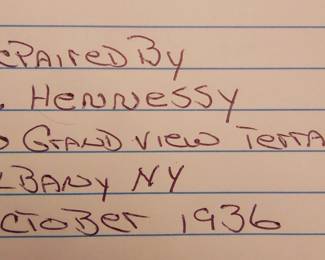 epaired By
. Hennessy
0 Grand View Terra
lbany NY
ctober 1936